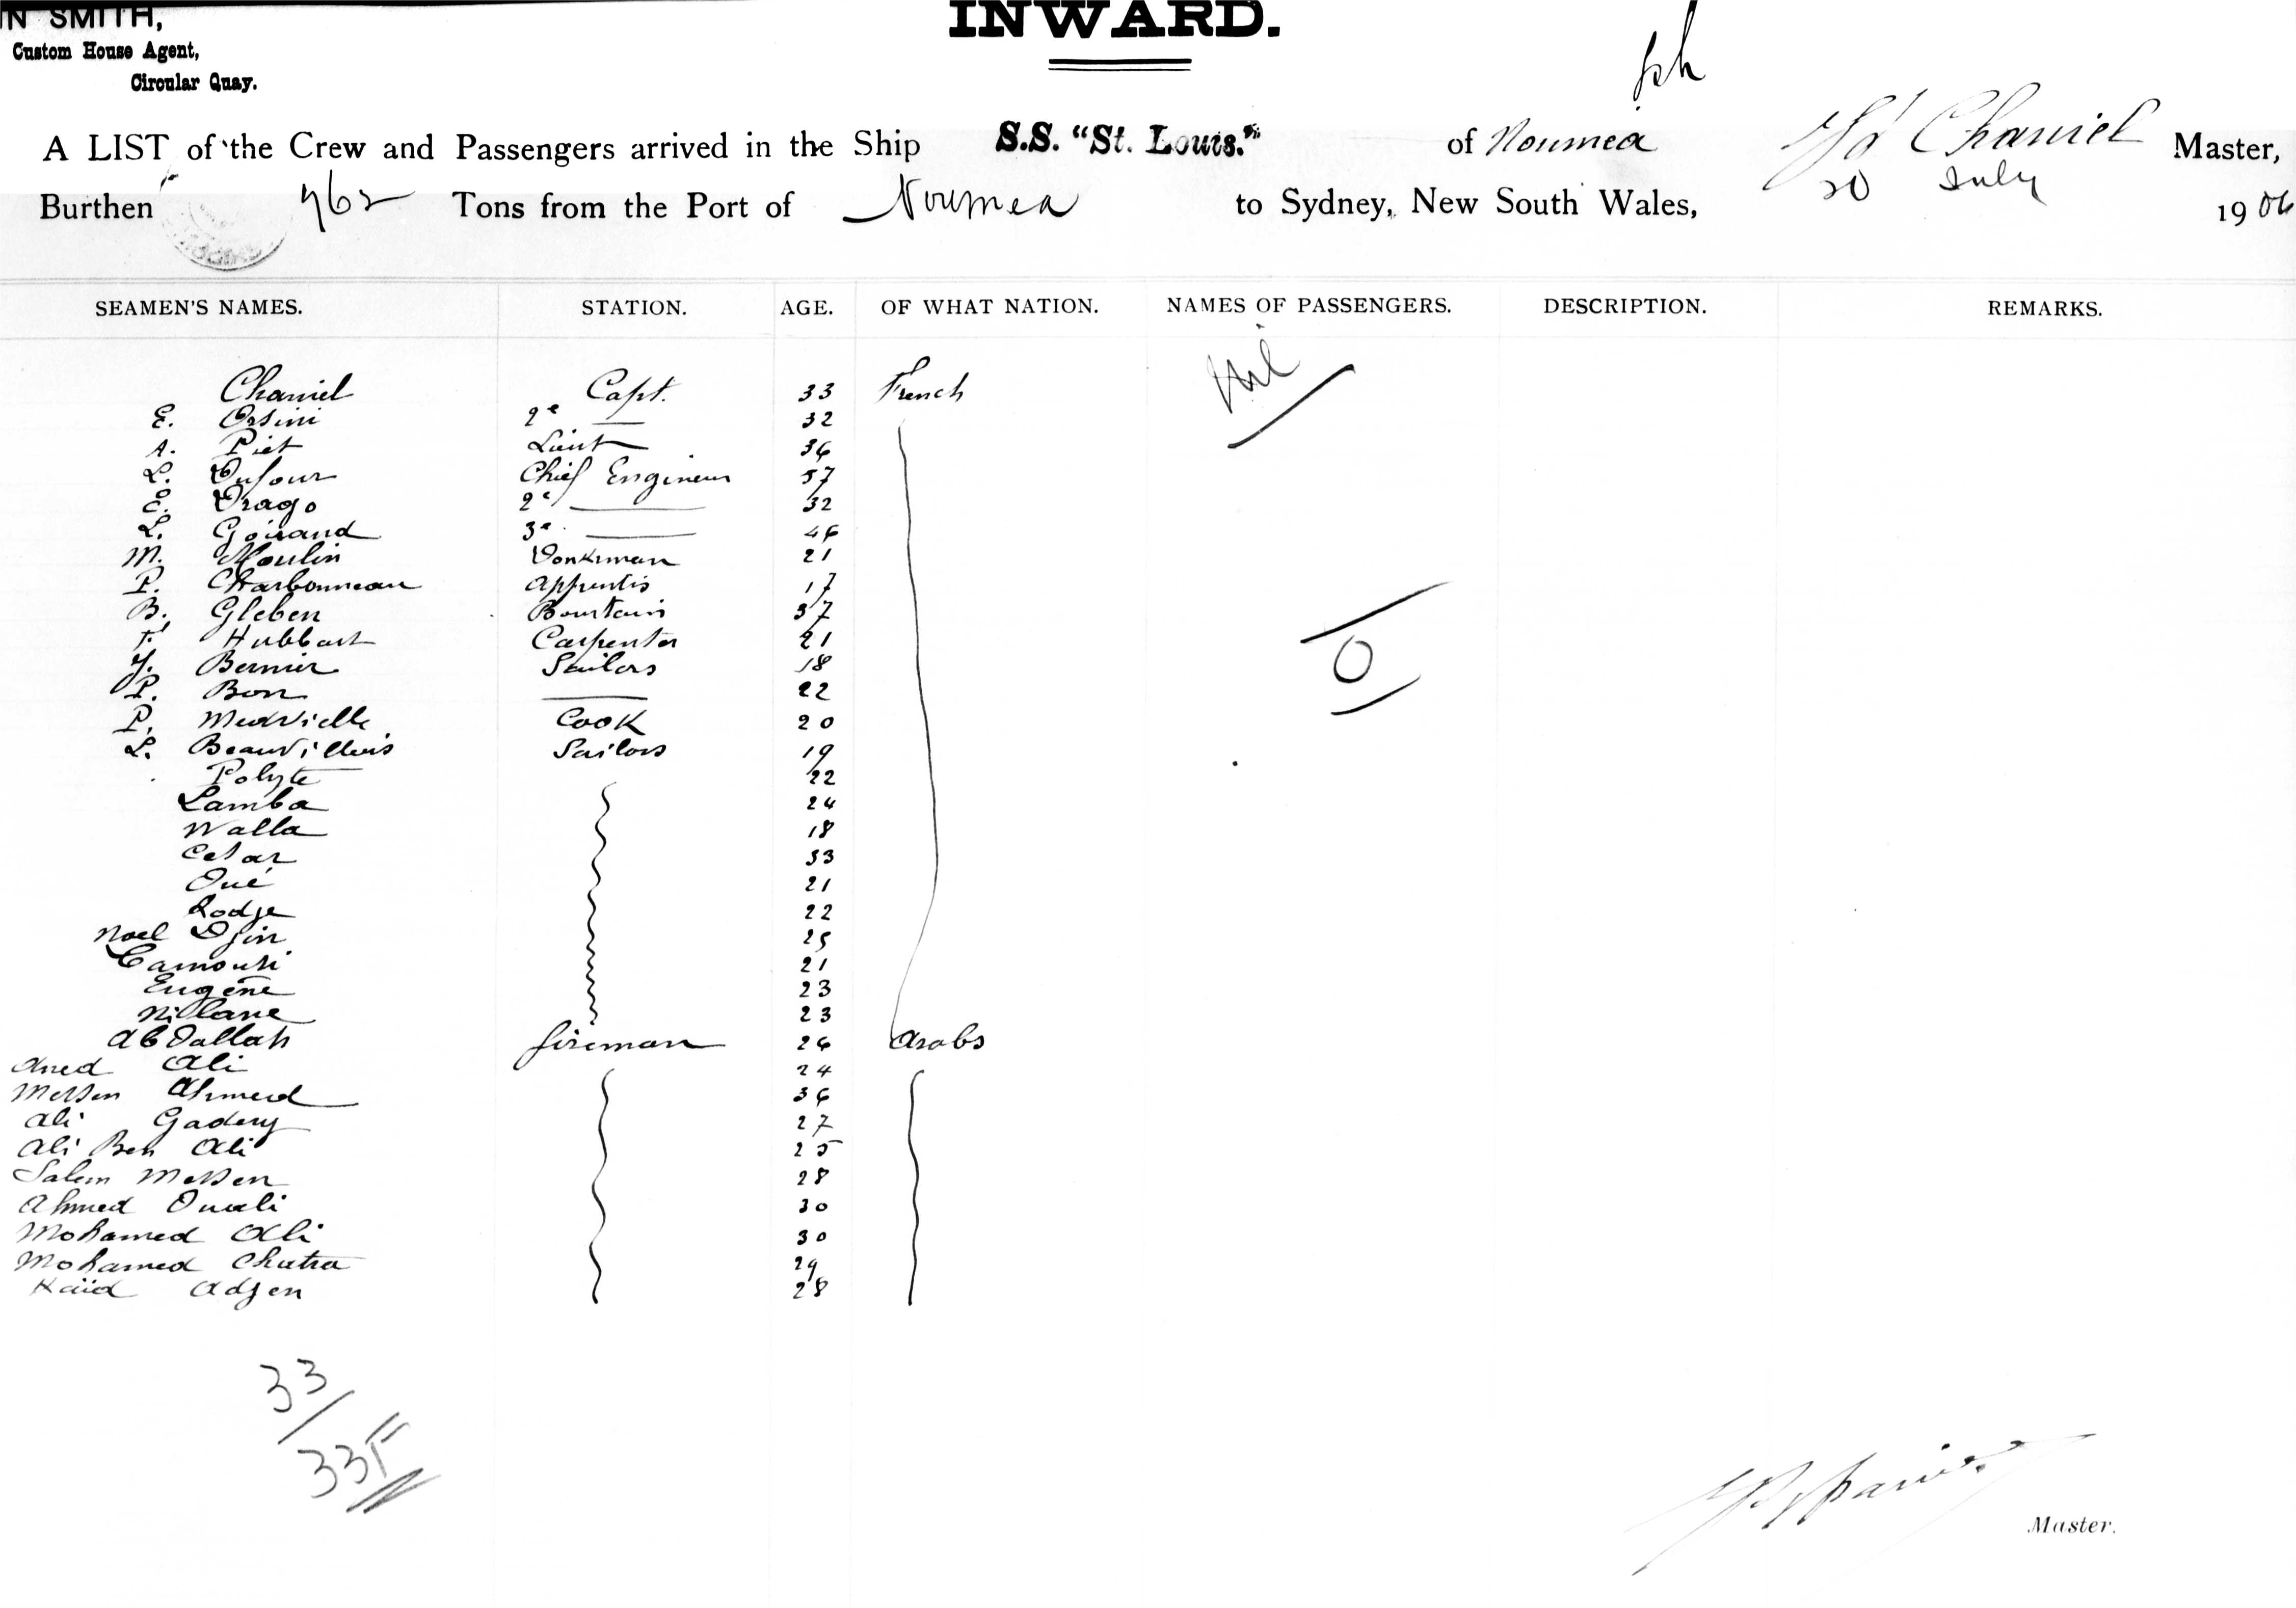 N SMITH,
Custom House Agent,
Circular Quay.
INWARD.
A LIST of the Crew and Passengers arrived in the Ship S.S. "St. Louis." of Noumea Chaniel Master,
Burthen 962 Tons from the Port of Noumea to Sydney, New South Wales, 20 July 1906
SEAMEN'S NAMES. STATION. AGE. OF WHAT NATION. NAMES OF PASSENGERS. DESCRIPTION. REMARKS.
Chaniel Capt. 33 French Nil
E. Orsini 2e 32
A. Piet Lieut 36
L. Dufour Chief Engineer 57
E. Drago 2e 32
L. Goirand 3e 46
M. Moulin Donkiman 21
P. Charbonneau Apprentis 17
B. Gleben 37
F. Hubbart Carpenter 21
J. Bernier Sailors 18
P. Bon 22 0
P. Cook 20
L. Beauvillois Sailors 19
Polyte 22
Lamba 24
Walla 18
Cesar 33
Oué 21
Rodje 22
Noel Djin 25
21
Eugène 23
23
Abdallah fireman 26 Arabs
Ali 24
Messen Ahmed 36
Ali Gadery 27
Ali Ben Ali 25
Salem Messen 28
Ahmed 30
Mohamed Ali 30
Mohamed Chatra 29
Kaïd Adjen 28
33
33F
Master.